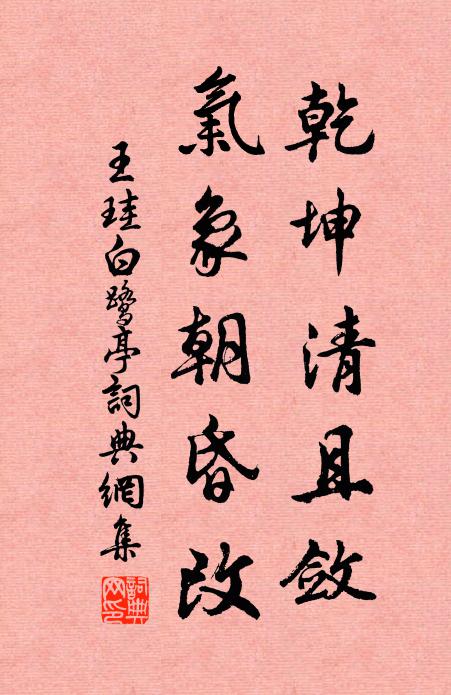 乾坤清且斂
氣象朝昏改
王珪白鷺亭詞典網集
詞典網印